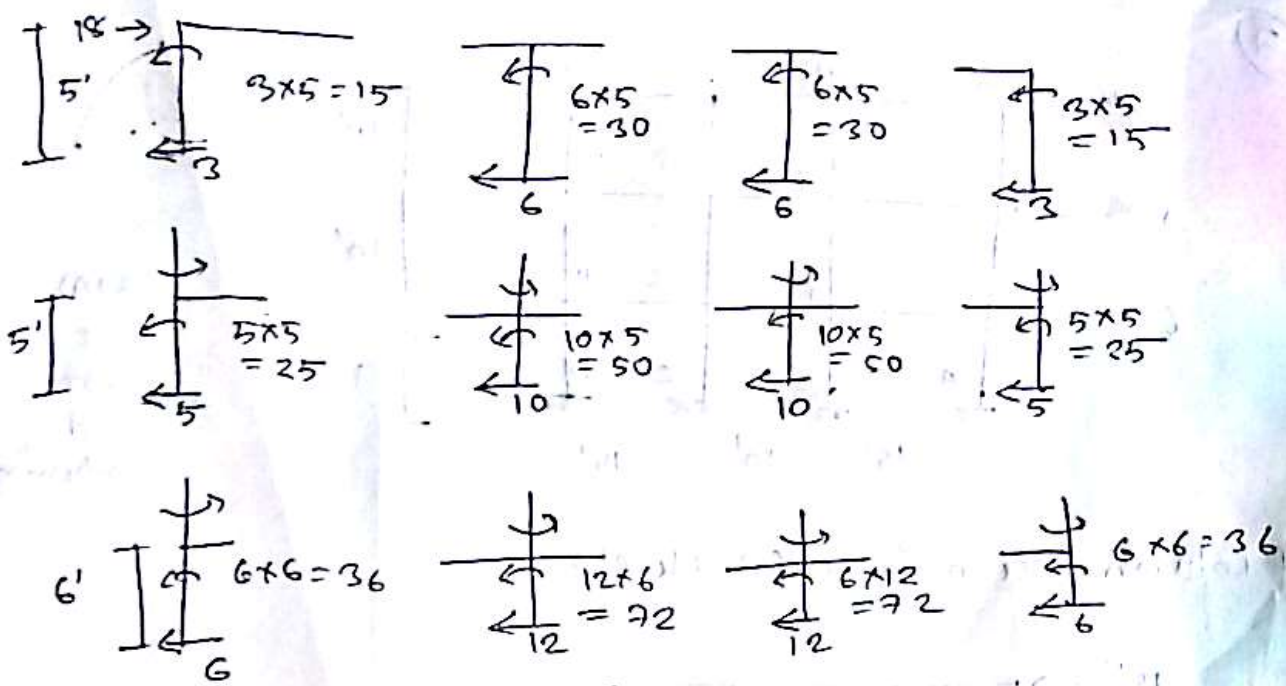 18 →
5'
3×5=15
3
6×5
=30
6
6×5
=30
6
3×5
=15
3
5'
5×5
=25
5
10×5
=50
10
10×5
=50
10
5×5
=25
5
6'
6×6=36
6
12×6
=72
12
6×12
=72
12
6×6=36
6